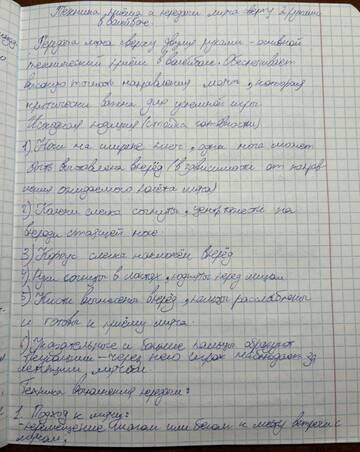 Техника приёма и передачи мяча сверху 2 руками
в волейболе.
Передача мяча сверху двумя руками - основной
технический приём в волейболе. Обеспечивает
высокую точность направления мяча, которая
критически важна для успешной игры.
Исходная позиция (стойка готовности)
1) Ноги на ширине плеч, одна нога может
быть выставлена вперёд (в зависимости от направ-
ления ожидаемого полёта мяча)
2) Колени слегка согнуты, центр тяжести на
впереди стоящей ноге
3) Корпус слегка наклонён вперёд
4) Руки согнуты в локтях, подняты перед лицом
5) Кисти вынесены вперёд, пальцы расслаблены
и готовы к приёму мяча.
6) Указательные и большие пальцы образуют
треугольник - через него игрок наблюдает за
летящим мячом
Техника выполнения передачи:
1. Подход к мячу:
- перемещение шагом или бегом к месту встречи с
мячом.